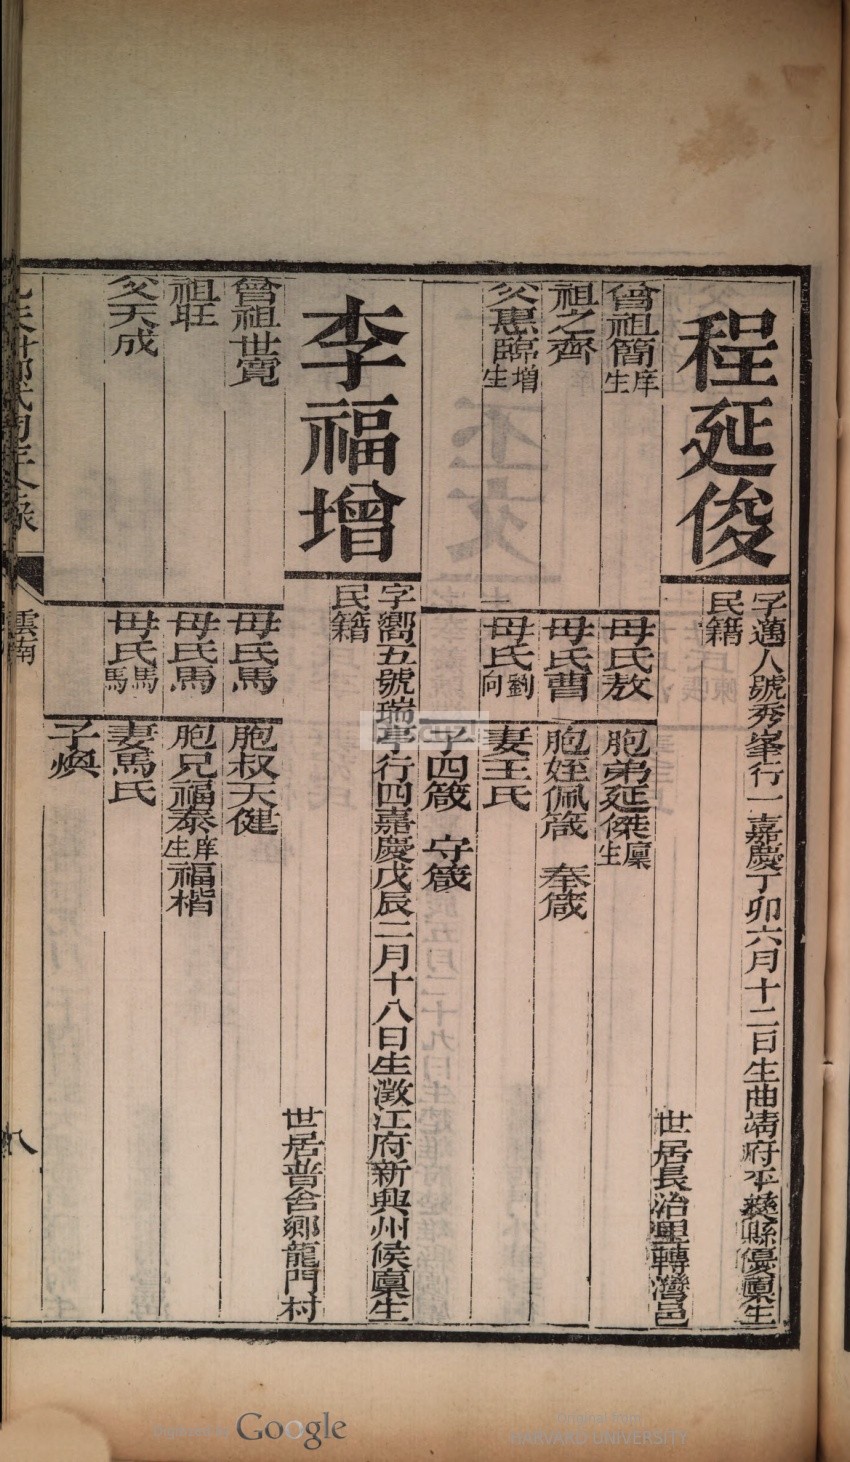 程延俊
字邁人號秀峯行一嘉慶丁卯六月十二日生曲靖府平彝縣優廩生
民籍
世居長治里轉灣邑
曾祖簡庠生
母氏敖
胞弟延傑廩生
祖之齊
母氏曹
胞姪佩箴 奉箴
父惠臨增生
母氏劉向
妻王氏
子四箴 守箴
李福增
字嚮五號瑞亭行四嘉慶戊辰二月十八日生澂江府新興州候廩生
民籍
世居普舍鄉龍門村
曾祖世寬
母氏馬
胞叔天健
祖旺
母氏馬
胞兄福泰庠生福楷
父天成
母氏馬馬
妻馬氏
子煥
雲南
八
Google
Original from
HARVARD UNIVERSITY